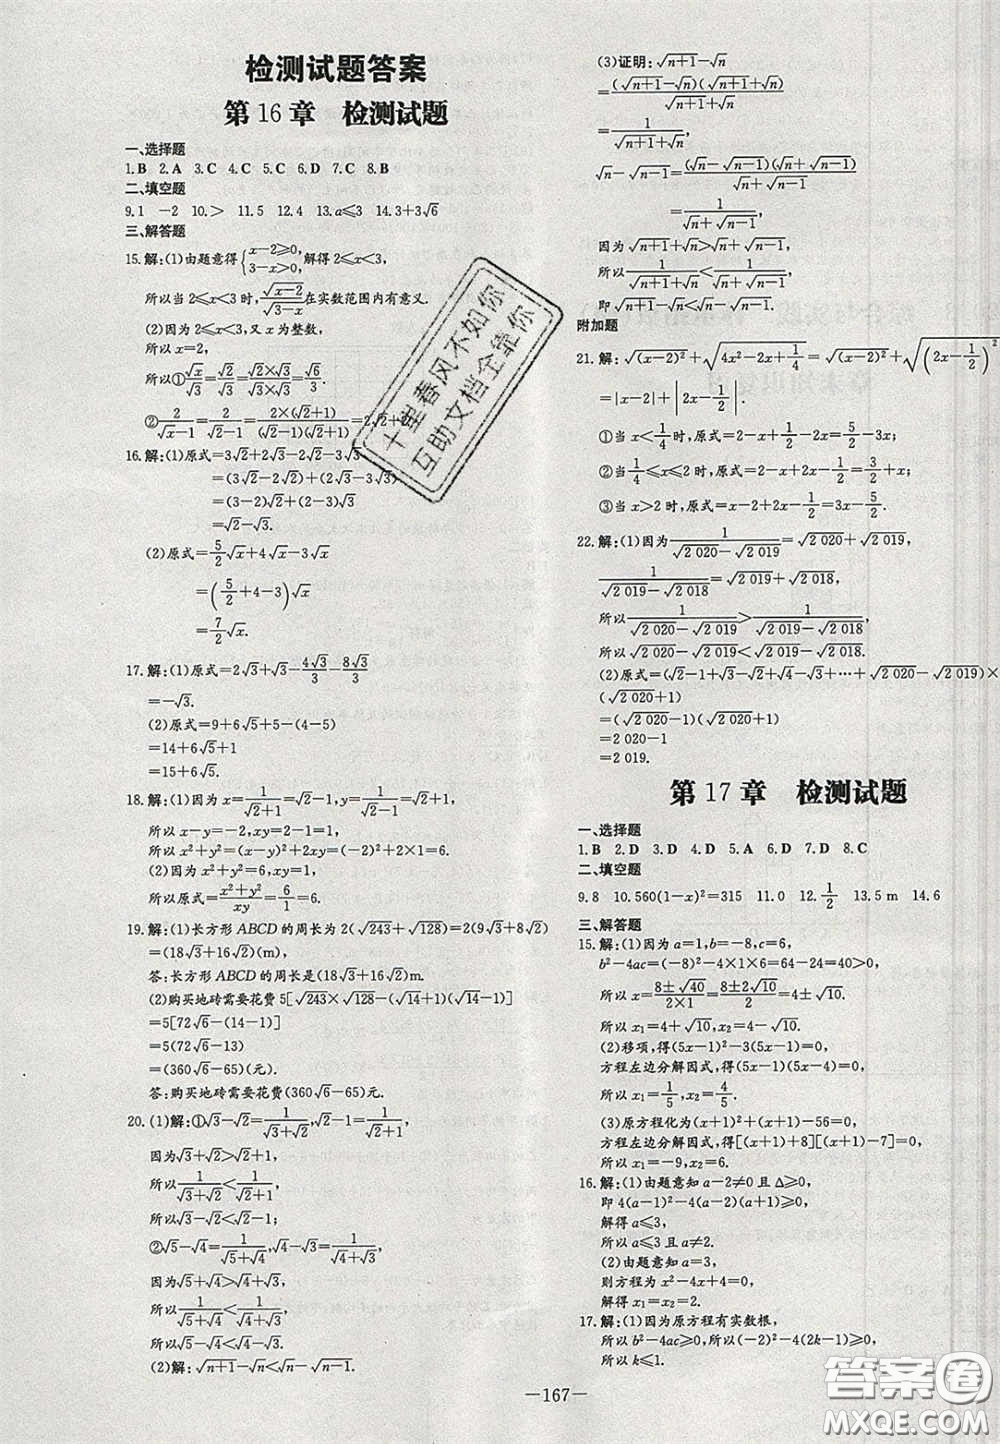 检测试题答案
第16章 检测试题
一、选择题
1.B 2.A 3.C 4.C 5.C 6.D 7.C 8.B
二、填空题
9.1 −2 10.> 11.5 12.4 13.a⩽3 14.3+3√6
三、解答题
15.解:(1)由题意得{x−2⩾0, 3−x>0, 解得2⩽x<3,
所以当2⩽x<3时,√(x−2)/√(3−x)在实数范围内有意义.
(2)因为2⩽x<3,又x为整数,
所以x=2,
所以①√x/√3=√2/√3=(√2×√3)/(√3×√3)=√6/3.
②2/(√x−1)=2/(√2−1)=2×(√2+1)/((√2−1)(√2+1))=2√2+
16.解:(1)原式=3√2+2√3−2√2−3√3
=(3√2−2√2)+(2√3−3√3)
=√2−√3.
(2)原式=5/2√x+4√x−3√x
=(5/2+4−3)√x
=7/2√x.
17.解:(1)原式=2√3+√3−4√3/3−8√3/3
=−√3.
(2)原式=9+6√5+5−(4−5)
=14+6√5+1
=15+6√5.
18.解:(1)因为x=1/(√2+1)=√2−1,y=√2+1,
所以x−y=−2,xy=2−1=1,
所以x²+y²=(x−y)²+2xy=(−2)²+2×1=6.
(2)因为x²+y²=6,xy=1,
所以原式=(x²+y²)/xy=6/1=6.
19.解:(1)长方形ABCD的周长为2(√243+√128)=2(9√3+8√2)
=(18√3+16√2)(m),
答:长方形ABCD的周长是(18√3+16√2)m.
(2)购买地砖需要花费5[√243×√128−(√14+1)(√14−1)]
=5[72√6−(14−1)]
=5(72√6−13)
=(360√6−65)(元).
答:购买地砖需要花费(360√6−65)元.
20.(1)解:①√3−√2=1/(√3+√2),√2−1=1/(√2+1),
因为√3+√2>√2+1,
所以1/(√3+√2)<1/(√2+1),
所以√3−√2<√2−1;
②√5−√4=1/(√5+√4),√4−√3=1/(√4+√3),
因为√5+√4>√4+√3,
所以1/(√5+√4)<1/(√4+√3),
所以√5−√4<√4−√3.
(2)解:√(n+1)−√n<√n−√(n−1).
(3)证明:√(n+1)−√n
=(√(n+1)−√n)(√(n+1)+√n)/(√(n+1)+√n)
=1/(√(n+1)+√n),
√n−√(n−1)=(√n−√(n−1))(√n+√(n−1))/(√n+√(n−1))
=1/(√n+√(n−1)),
因为√(n+1)+√n>√n+√(n−1),
所以1/(√(n+1)+√n)<1/(√n+√(n−1)),
即√(n+1)−√n<√n−√(n−1).
附加题
21.解:√(x−2)²+√(4x²−2x+1/4)=√(x−2)²+√(2x−1/2)²
=|x−2|+|2x−1/2|
①当x<1/4时,原式=2−x−2x+1/2=5/2−3x;
②当1/4⩽x⩽2时,原式=2−x+2x−1/2=3/2+x;
③当x>2时,原式=x−2+2x−1/2=3x−5/2.
22.解:(1)因为1/(√2 020−√2 019)=√2 020+√2 019,
1/(√2 019−√2 018)=√2 019+√2 018,
所以1/(√2 020−√2 019)>1/(√2 019−√2 018),
所以√2 020−√2 019<√2 019−√2 018.
(2)原式=(√2−1+√3−√2+√4−√3+…+√2 020−√2 019)×
(√2 020+1)
=(√2 020−1)(√2 020+1)
=2 020−1
=2 019.
第17章 检测试题
一、选择题
1.B 2.D 3.D 4.D 5.A 6.D 7.D 8.C
二、填空题
9.8 10.560(1−x)²=315 11.0 12.1/2 13.5 m 14.6
三、解答题
15.解:(1)因为a=1,b=−8,c=6,
b²−4ac=(−8)²−4×1×6=64−24=40>0,
所以x=(8±√40)/(2×1)=(8±2√10)/2=4±√10,
所以x₁=4+√10,x₂=4−√10.
(2)移项,得(5x−1)²−3(5x−1)=0,
方程左边分解因式,得(5x−1)(5x−4)=0,
所以x₁=1/5,x₂=4/5.
(3)原方程化为(x+1)²+(x+1)−56=0,
方程左边分解因式,得[(x+1)+8][(x+1)−7]=0,
所以x₁=−9,x₂=6.
16.解:(1)由题意知a−2≠0且Δ⩾0,
即4(a−1)²−4(a−2)(a+1)⩾0,
解得a⩽3,
所以a⩽3且a≠2.
(2)由题意知a=3,
则方程为x²−4x+4=0,
解得x₁=x₂=2.
17.解:(1)因为原方程有实数根,
所以b²−4ac⩾0,所以(−2)²−4(2k−1)⩾0,
所以k⩽1.
—167—
十里春风不如你
互助文档全靠你
答案圈
MXQE.COM